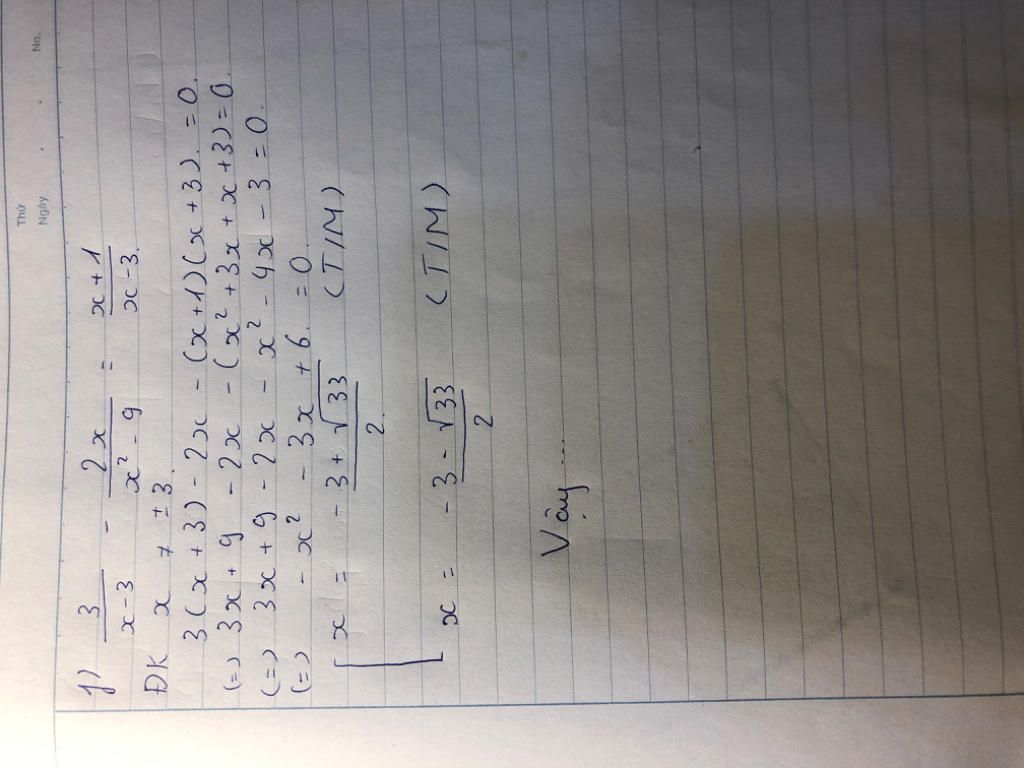 Thứ
Ngày
No.
f) 3/(x-3) - 2x/(x² - 9) = (x+1)/(x-3).
ĐK x ≠ ± 3.
3(x+3) - 2x - (x+1)(x+3). = 0.
(=) 3x + 9 - 2x - (x² + 3x + x + 3) = 0.
(=) 3x + 9 - 2x - x² - 4x - 3 = 0.
(=) - x² - 3x + 6. = 0.
[ x = - (3 + √33)/2. (T/M)
x = - (3 - √33)/2 (T/M)
Vậy ....